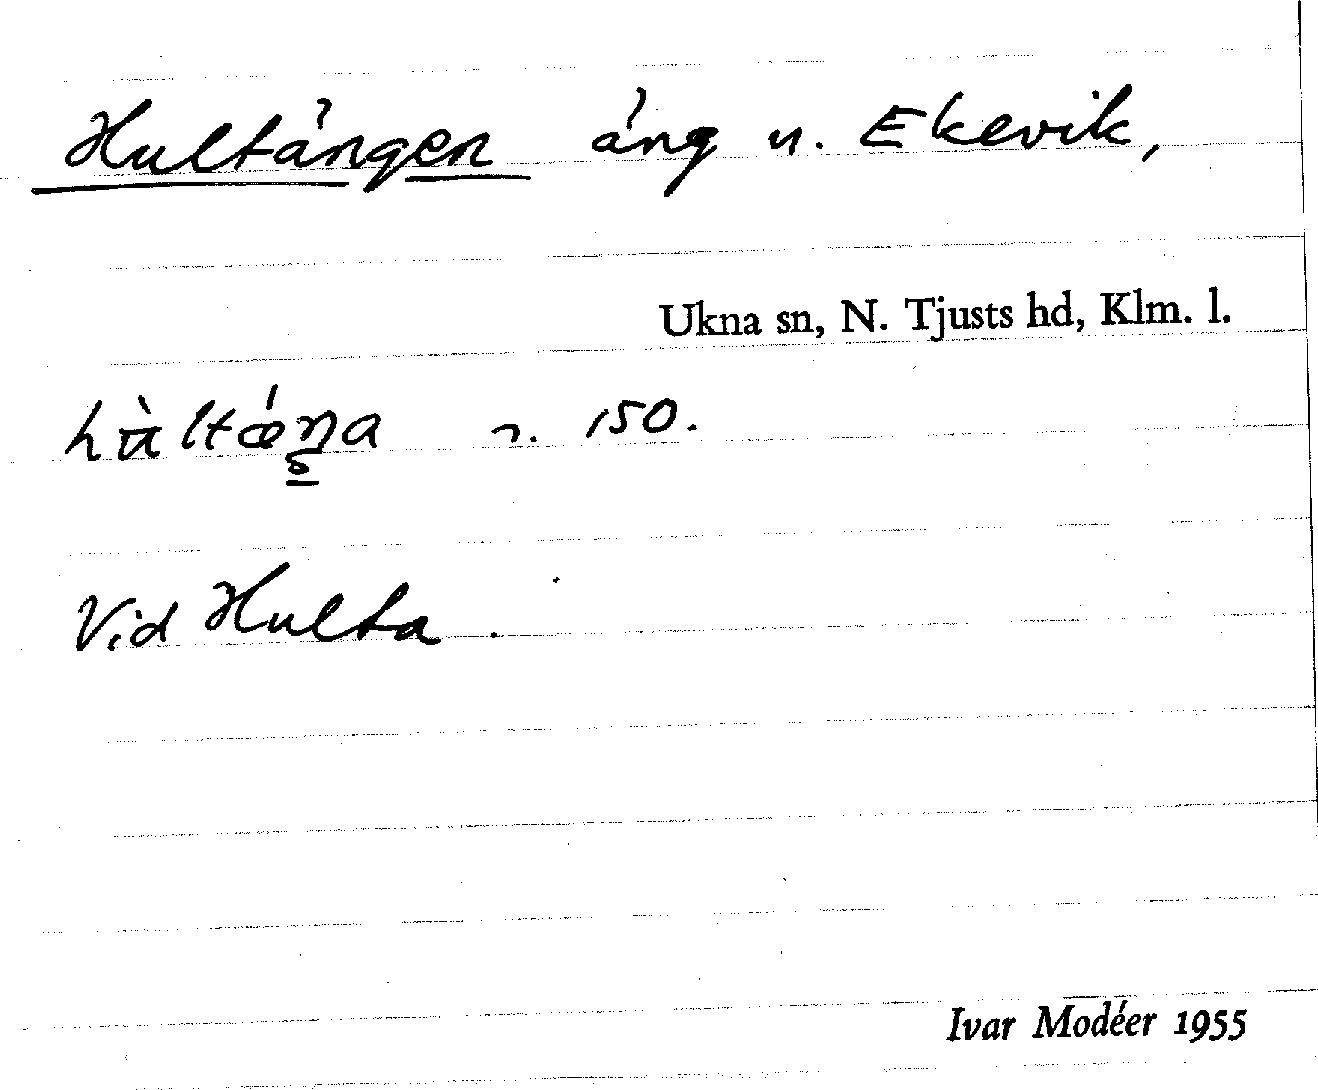 Hultängen äng u. Ekevik,
Ukna sn, N. Tjusts hd, Klm. l.
150.
Vid Hulta.
Ivar Modéer 1955